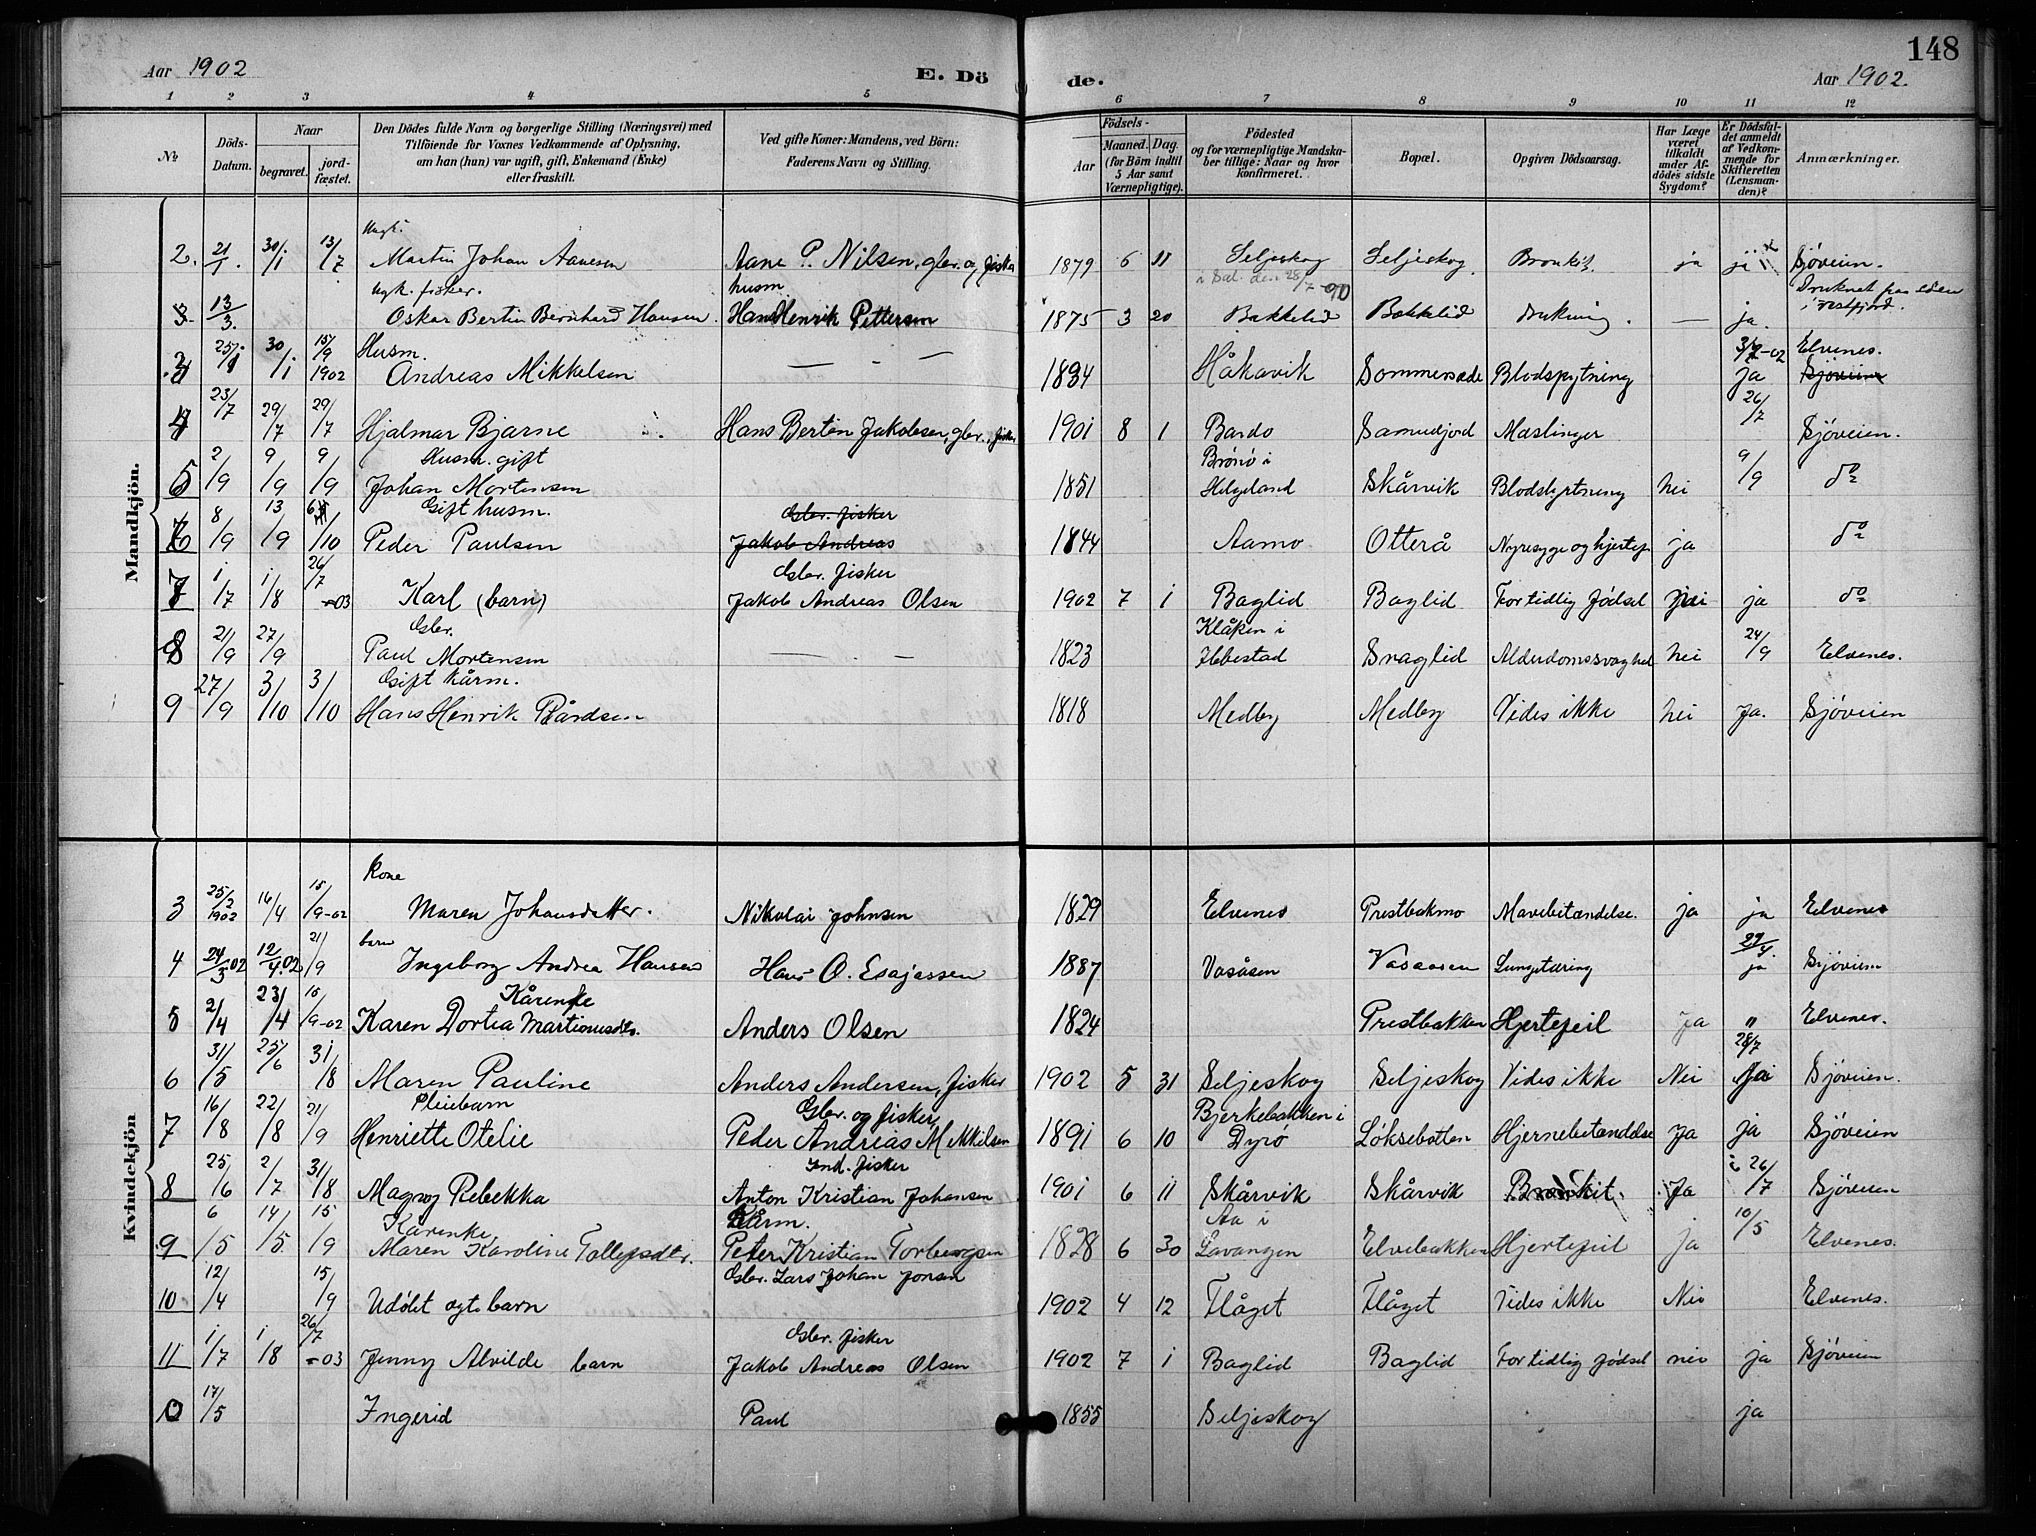 148
Aar 1902
E. Dö
de.
Aar 1902.
1 2 3 4 5 6 7 8 9 10 11 12
№
Döds-Datum.
Naar
begravet.
jord-fæstet.
Den Dödes fulde Navn og borgerlige Stilling (Næringsvei) med
Tilföiende for Voxnes Vedkommende af Oplysning,
om han (hun) var ugift, gift, Enkemand (Enke)
eller fraskilt.
Ved gifte Koner: Mandens, ved Börn:
Faderens Navn og Stilling.
Födsels-
Aar
Maaned. Dag.
(for Börn indtil
5 Aar samt
Værnepligtige).
Födested
og for værnepligtige Mandska-
ber tillige: Naar og hvor
konfirmeret.
Bopæl.
Opgiven Dödsaarsag.
Har Læge
været
tilkaldt
under Af-
dödes sidste
Sygdom?
Er Dödsfal-
det anmeldt
af Vedkom-
mende for
Skifteretten
(Lensman-
den)?
Anmærkninger.
Mandkjön.
Ungk.
2. 21/1. 30/1 13/7 Martin Johan Aanesen Aane P. Nilsen, gbr. og fisker 1879 6 11 Seljeskog Seljeskog Bronkit. ja ja Sjöveien.
i Sal. den 28/7-90
ugk. fisker. husm Druknet paa
i Vestfjord.
3. 13/3. Oskar Bertin Bernhard Hansen. Hans Henrik Pettersen 1875 3 20 Bakkelid Bakkelid drukning. — ja.
Husm. Elvenes.
25/1 30/1 15/9 1902 Andreas Mikkelsen — - — 1834 Håkavik Sommersæde Blodspytning ja Sjöveien
4 23/7 29/7 29/7 Hjalmar Bjarne Hans Bertin Jakobsen, gbr., fisker 1901 8 1 Bardo Samudjord Mæslinger 26/7 Sjöveien.
Husm. gift Brønø i
5 2/9 9/9 9/9 Johan Mortensen 1851 Helgeland Skårvik Blodstyrtning nei 9/9 do
Gift husm. Gbr. fisker
6 8/9 13/9 /10 Peder Paulsen Jakob Andreas 1844 Aamo Otterå Nyresyge og hjertef. ja do
Gbr. fisker
7 1/7 1/8 26/7-03 Karl (barn) Jakob Andreas Olsen 1902 7 1 Baglid Baglid For tidlig fødsel nei ja do
Gbr. Klåken i
8 21/9 27/9 Paul Mortensen — - — 1823 Ibbestad Snaglid Alderdomssvaghed nei 24/9 Elvenes.
Gift kårm.
9 27/9 3/10 3/10 Hans Henrik Bårdsen 1818 Medby Medby Vides ikke nei Ja. Sjöveien
Kvindekjön
Kone
3 25/2 1902 16/4 15/9-02 Maren Johansdatter. Nikolai Johnsen 1829 Elvenes Prestbakmo Mavebetændelse. ja ja Elvenes
barn
4 24/3 02 12/4.02 21/9 Ingeborg Andrea Hansen Hans O. Esajassen 1887 Vasåsen Vasaasen Lungetæring 29/4. ja Sjöveien
Kårenke
5 2/4 23/4 15/9-02 Karen Dortea Martinusdtr. Anders Olsen 1824 Prestbakken Hjertefeil Ja " Elvenes.
6 31/5 25/6 31/8 Maren Pauline Anders Andersen, fisker 1902 5 31 Seljeskog Seljeskog Vides ikke Nei 28/7 Ja Sjöveien.
Pleiebarn Gbr. og fisker Bjerkebakken i
7 16/8 22/8 21/9 Henriette Otelie Peder Andreas M. Mikelsen 1891 6 10 Dyrö Löksebotten Hjernebetændelse Ja ja Sjöveien
Ind. fisker
8 25/6 2/7 31/8 Magny Rebekka Anton Kristian Johansen 1901 6 11 Skårvik Skårvik Bronkit. Ja 26/7 Sjöveien
Kårenke Kårm. Aa i
9 6/5 14/5 15/9 Maren Karoline Tollefsdtr. Peter Kristian Torbergsen 1828 6 30 Lavangen Elvebakken Hjertefeil ja 10/5 Elvenes.
Gbr. Lars Johan Jonsen
10 12/4 15/9 Udöbt egte barn 1902 4 12 Flåget Flåget Vides ikke Nei Elvenes.
Gbr. fisker
11 1/7 1/8 26/7-03 Jenny Alvilde barn Jakob Andreas Olsen 1902 7 1 Baglid Baglid For tidlig fødsel nei ja Sjöveien
0 17/5 Ingerid Paul 1855 Seljeskog ja